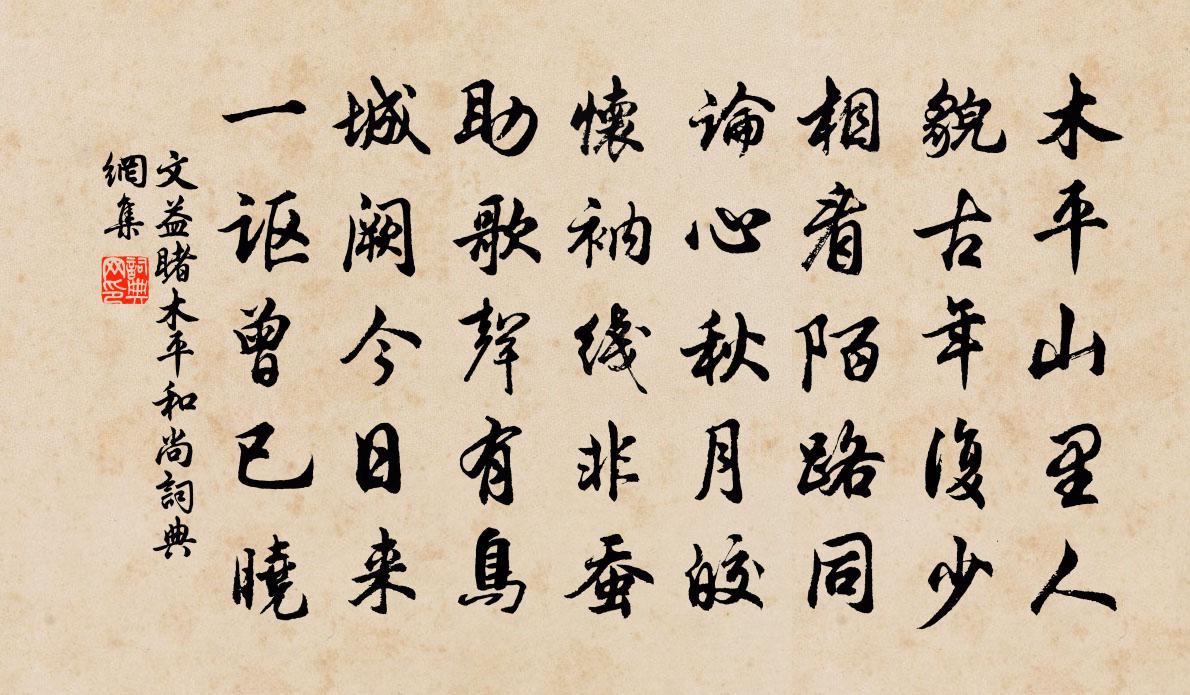 木平山里人
貌古年復少
相看陌路同
論心秋月皎
懷衲线非蚕
助歌聲有鳥
城闕今日来
一讴曾已曉
文益睹木平和尚詞典
網集
詞典
网印